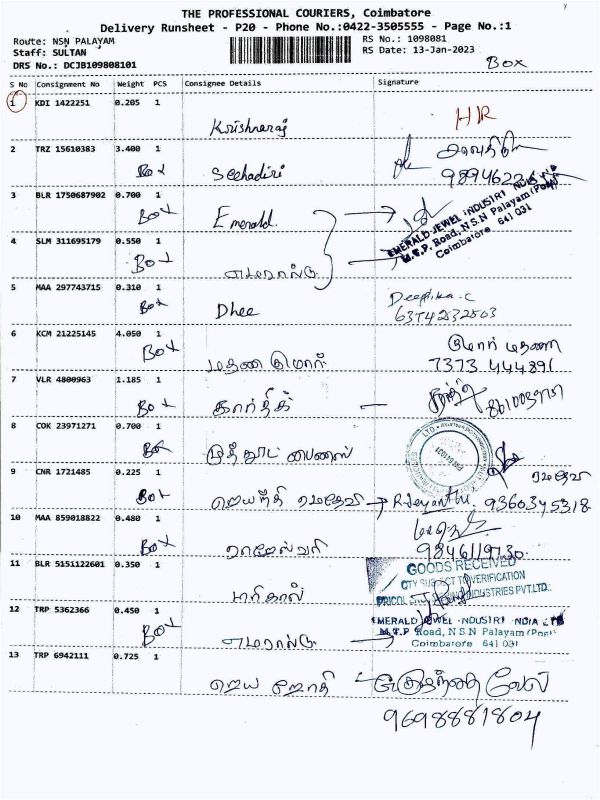 THE PROFESSIONAL COURIERS, Coimbatore
Delivery Runsheet - P20 - Phone No.:0422-3505555 - Page No.:1
Route: NSN PALAYAM
Staff: SULTAN
DRS No.: DCJB109808101
RS No.: 1098081
RS Date: 13-Jan-2023
Box
S No Consignment No Weight PCS Consignee Details Signature
1 KDI 1422251 0.205 1
Krishnaraj HR
2 TRZ 15610383 3.400 1
Box Seehadiri
3 BLR 1750687902 0.700 1
Box Emerald
EMERALD JEWEL INDUSTRY INDIA
M.T.P. Road, N.S.N Palayam (Post)
Coimbatore 641 031
4 SLM 311695179 0.550 1
Box எமரால்டு
5 MAA 297743715 0.310 1
Box Dhee Deepika.C
6374232503
6 KCM 21225145 4.050 1
Box மதன குமார்
7373 444891
7 VLR 4800963 1.185 1
Box கார்த்திக்
8 COK 23971271 0.700 1
Box முத்தூட் பைனாஸ்
9 CNR 1721485 0.225 1
Box ஜெயந்தி ரமாதேவி R.Jeyanthi 9360345318
10 MAA 859018822 0.480 1
Box ராஜேஸ்வரி
11 BLR 5151122601 0.350 1
GOODS RECEIVED
QTY SUBJECT TO VERIFICATION
INDUSTRIES PVT.LTD.
12 TRP 5362366 0.450 1
Box எமரால்டு
EMERALD JEWEL INDUSTRY INDIA
M.T.P Road, N S N Palayam (Post)
Coimbatore 641 031
13 TRP 6942111 0.725 1
ஜெய ஜோதி
9698881804